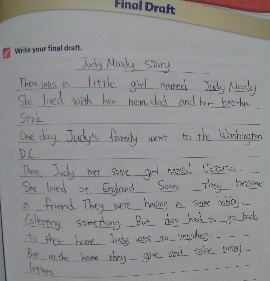 Final Draft
Write your final draft.
Judy Moody Story
There was a little girl named Judy Moody
She lived with her mom, dad and her brother
Stink
One day, Judy's family went to the Washington
D.C.
There, Judy met some girl named
She lived at England. Soon They become
a friend. They were having a same
Collecting something. But they had to go back
to their home. Judy was so
But at the home they give and take many
letters